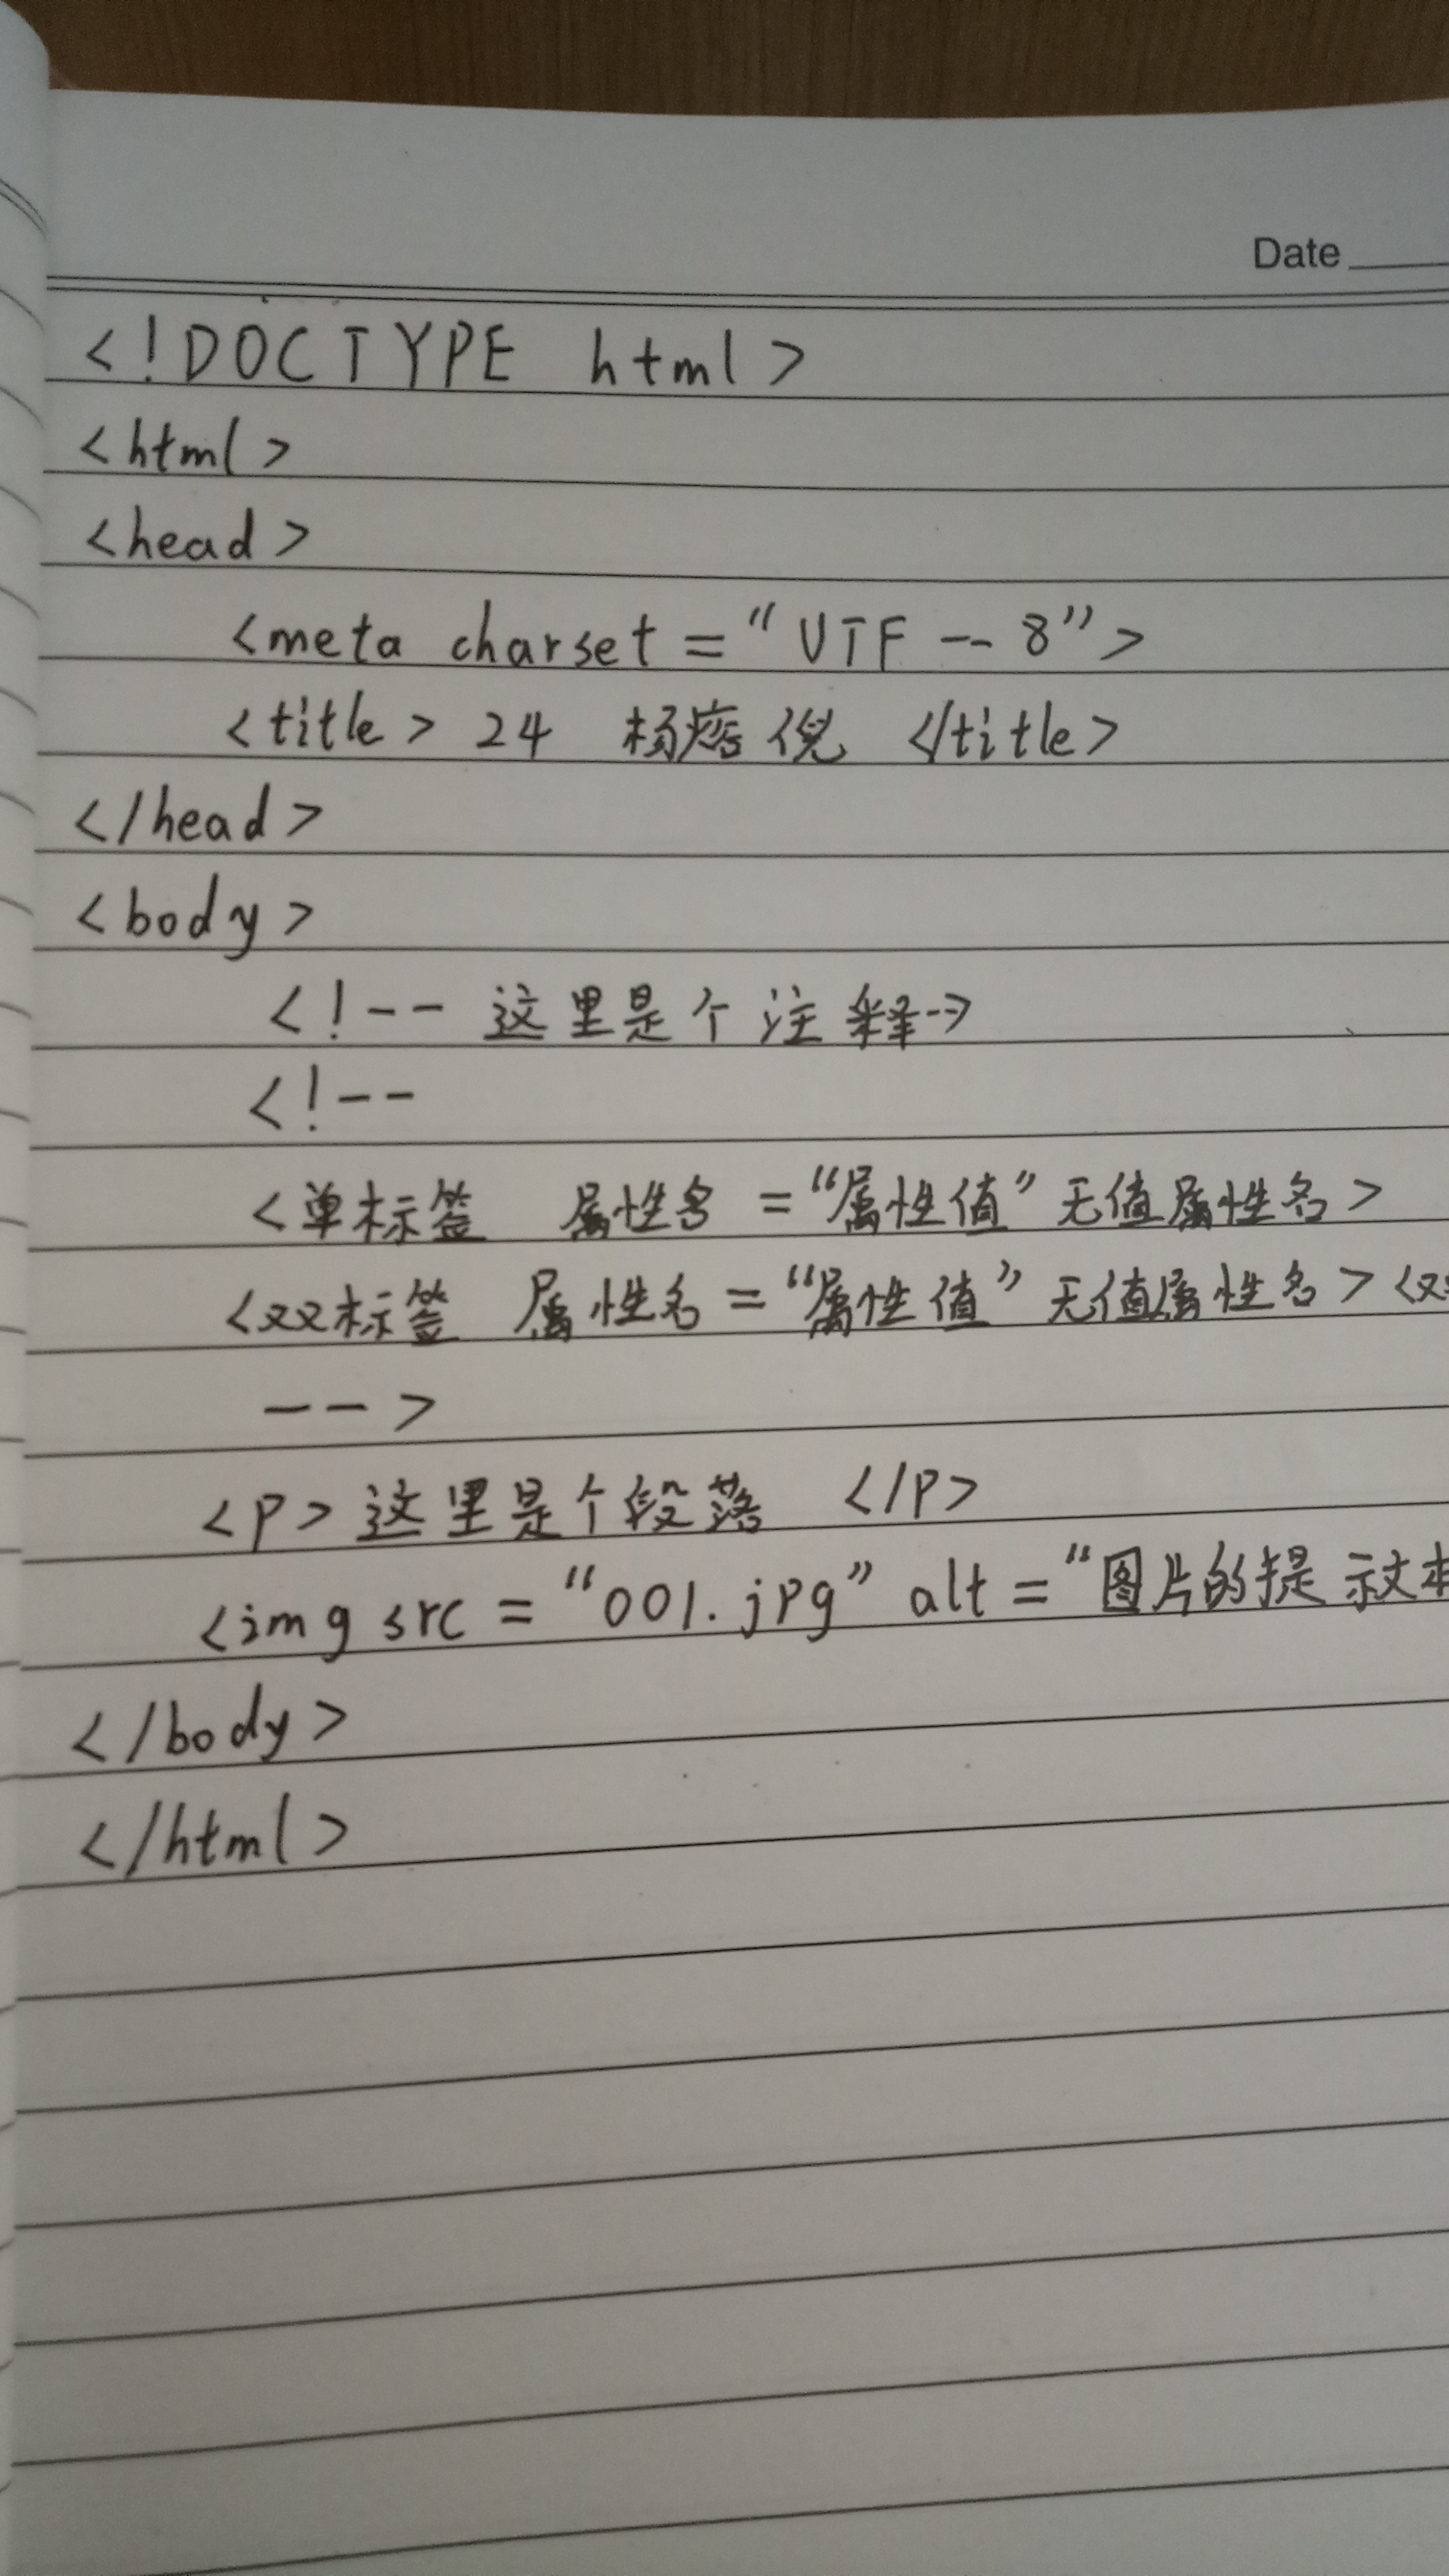 Date
<!DOCTYPE html>
<html>
<head>
<meta charset="UTF--8">
<title> 24 杨 倪 </title>
</head>
<body>
<!-- 这里是个注释-->
<!--
<单标签 属性名 ="属性值" 无值属性名>
<双标签 属性名="属性值" 无值属性名><双
-->
<p>这里是个段落 </p>
<img src="001.jpg" alt="图片的提示文本
</body>
</html>